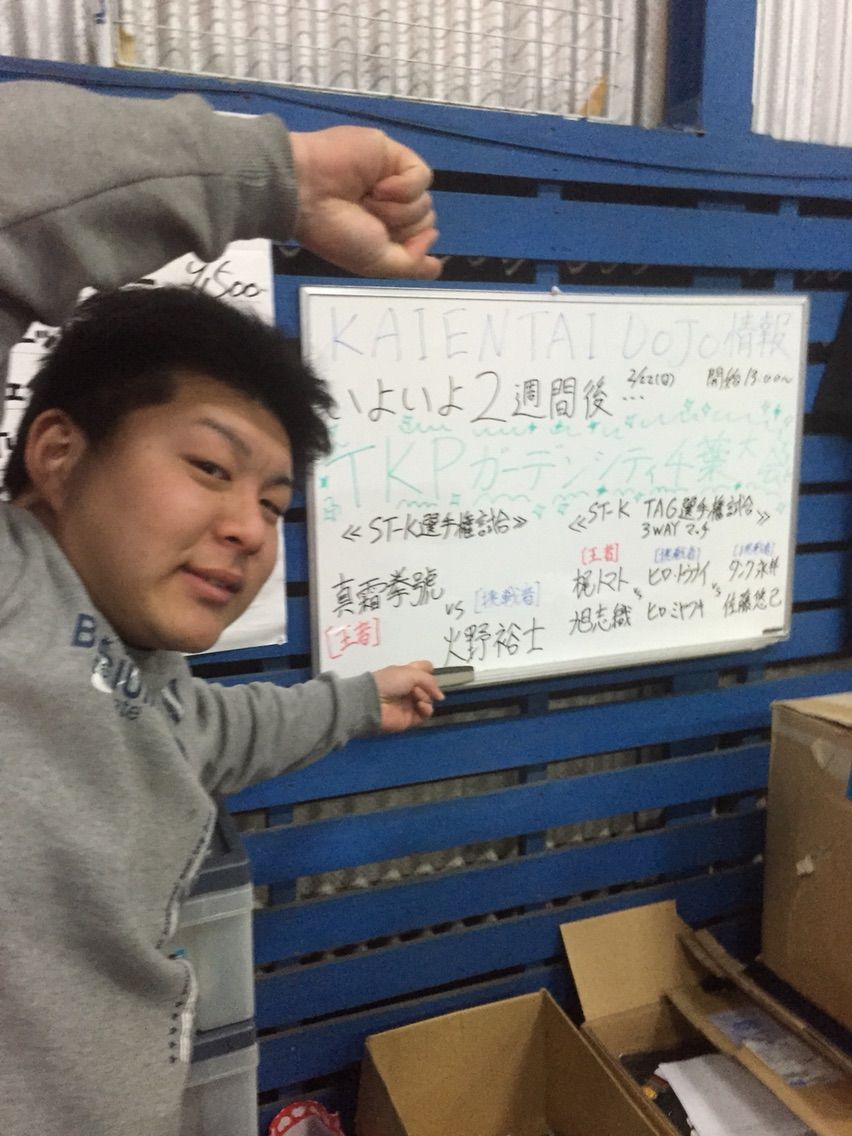 ¥,500
KAIENTAI DoJo情報
いよいよ2週間後…
2/22(日) 開始13:00〜
TKPガーデンシティ千葉大会
≪ST-K選手権試合≫
真霜拳號
[王者]
vs
[挑戦者]
火野裕士
≪ST-K TAG選手権試合
3WAYマッチ≫
[王者]
梶トマト
旭志織
vs
[挑戦者]
ヒロ・トウナイ
ヒロ・ミヤワキ
vs
[挑戦者]
タンク永井
佐藤悠己